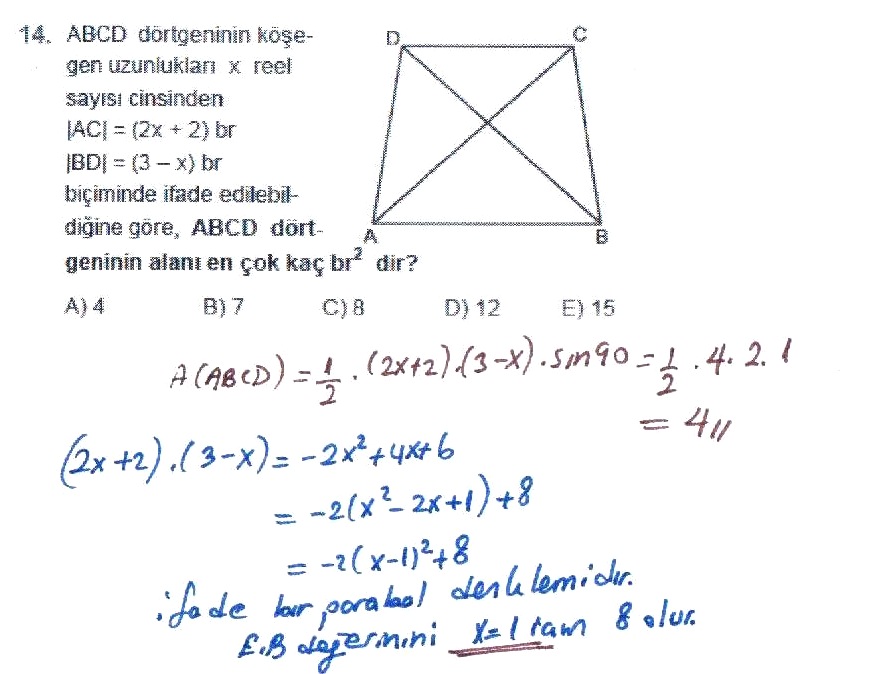 14. ABCD dörtgeninin köşe-
gen uzunlukları x reel
sayısı cinsinden
|AC| = (2x + 2) br
|BD| = (3 – x) br
biçiminde ifade edilebil-
diğine göre, ABCD dört-
geninin alanı en çok kaç br² dir?
D C
A B
A) 4 B) 7 C) 8 D) 12 E) 15
A(ABCD) = 1/2 . (2x+2).(3-x).sin90 = 1/2 . 4. 2. 1
= 4//
(2x+2).(3-x) = -2x²+4x+6
= -2(x²-2x+1)+8
= -2(x-1)²+8
ifade bir parabol denklemidir.
E.B değermini x=1 tam 8 olur.